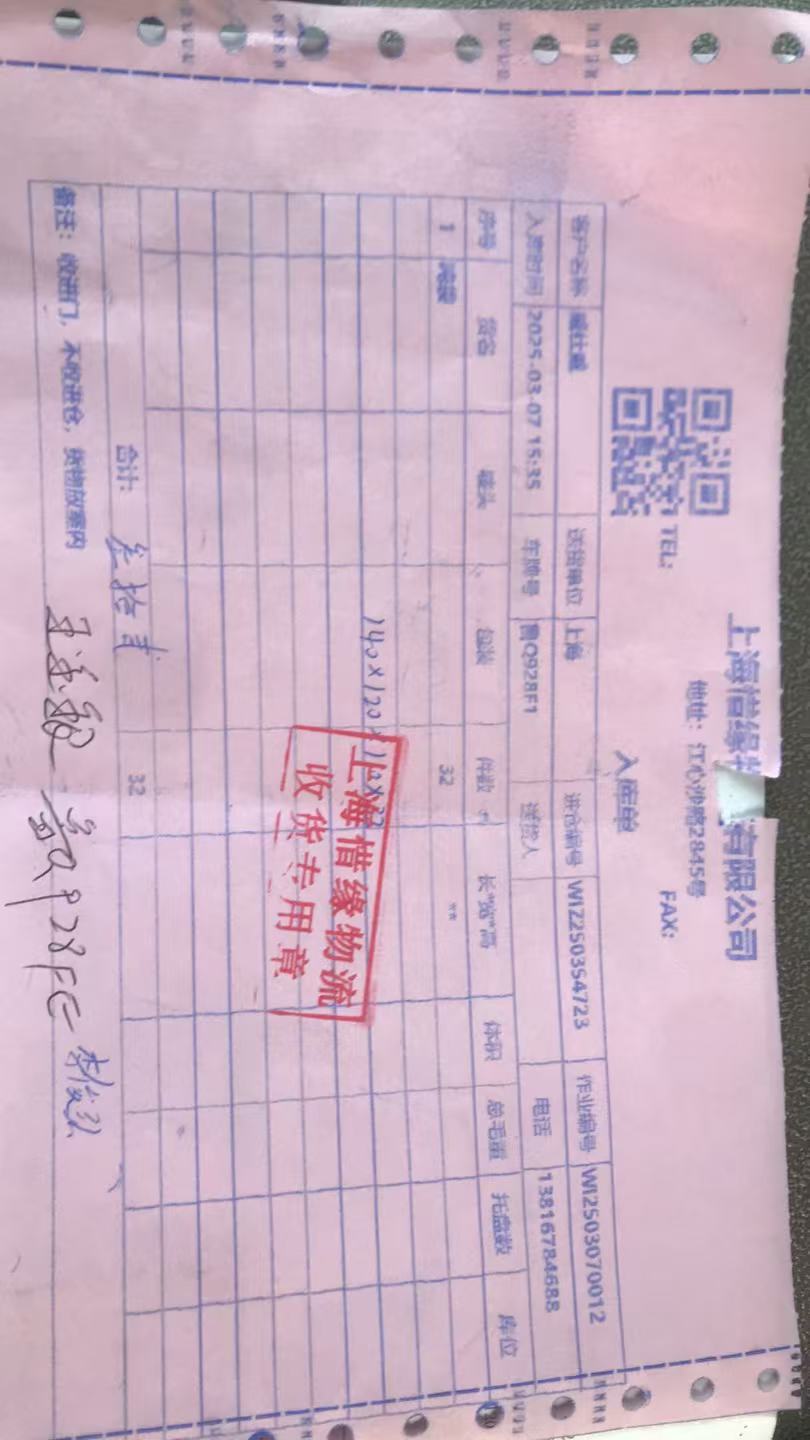 上海惜缘物有限公司
地址：江心沙路2845号
TEL: FAX:
入库单
客户名称 威仕威 送货单位 上海 进仓编号 WIZ250354723 作业编号 WI2503070012
入库时间 2025-03-07 15:35 车牌号 鲁Q928F1 送货人 电话 13816784688
序号 货名 唛头 包装 件数 长*宽*高 体积 总毛重 托盘数 库位
1 32 **
140×120×110×32
上海惜缘物流
收货专用章
合计： 叁拾贰 32
备注： 收进门，不收进仓，货物放塞内
鲁Q928F